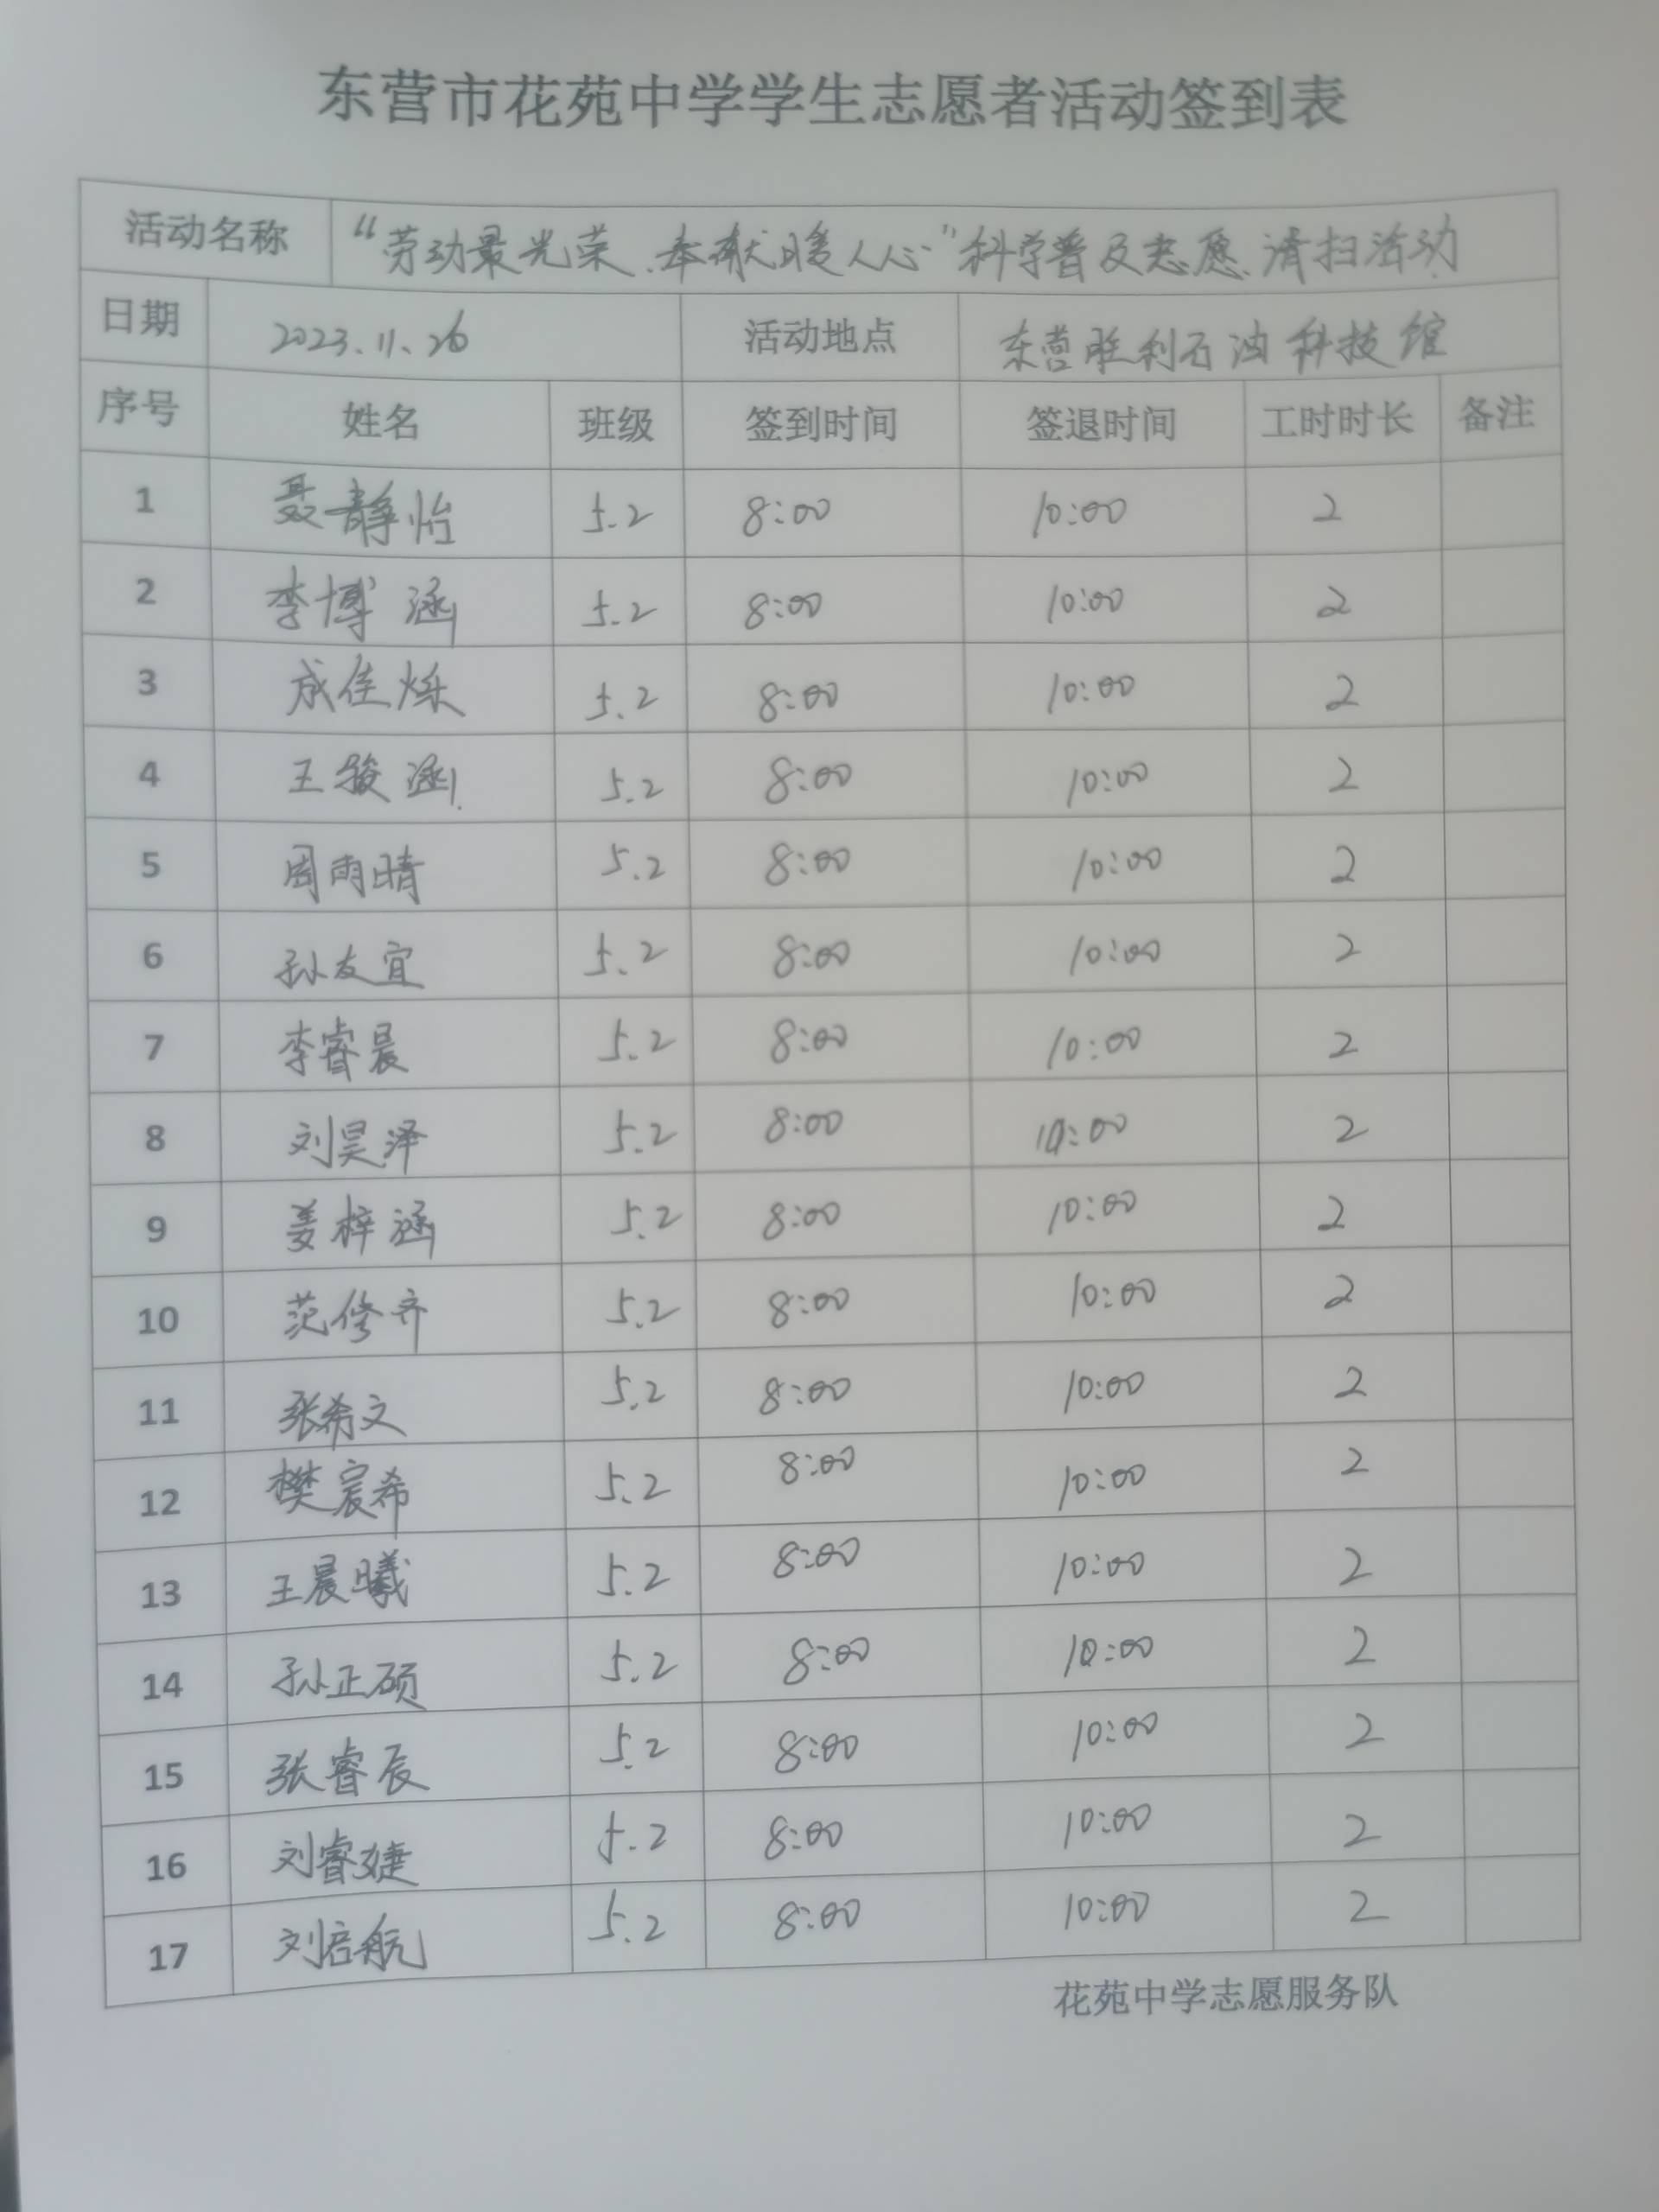 东营市花苑中学学生志愿者活动签到表
活动名称 “劳动最光荣、奉献暖人心”科学普及志愿、清扫活动
日期 2023.11.26 活动地点 东营胜利石油科技馆
序号 姓名 班级 签到时间 签退时间 工时时长 备注
1 聂静怡 5.2 8:00 10:00 2
2 李博涵 5.2 8:00 10:00 2
3 成佳烁 5.2 8:00 10:00 2
4 王骏涵 5.2 8:00 10:00 2
5 周雨晴 5.2 8:00 10:00 2
6 孙友宜 5.2 8:00 10:00 2
7 李睿晨 5.2 8:00 10:00 2
8 刘昊泽 5.2 8:00 10:00 2
9 姜梓涵 5.2 8:00 10:00 2
10 范修齐 5.2 8:00 10:00 2
11 张希文 5.2 8:00 10:00 2
12 樊宸希 5.2 8:00 10:00 2
13 王晨曦 5.2 8:00 10:00 2
14 孙正硕 5.2 8:00 10:00 2
15 张睿辰 5.2 8:00 10:00 2
16 刘睿婕 5.2 8:00 10:00 2
17 刘启航 5.2 8:00 10:00 2
花苑中学志愿服务队